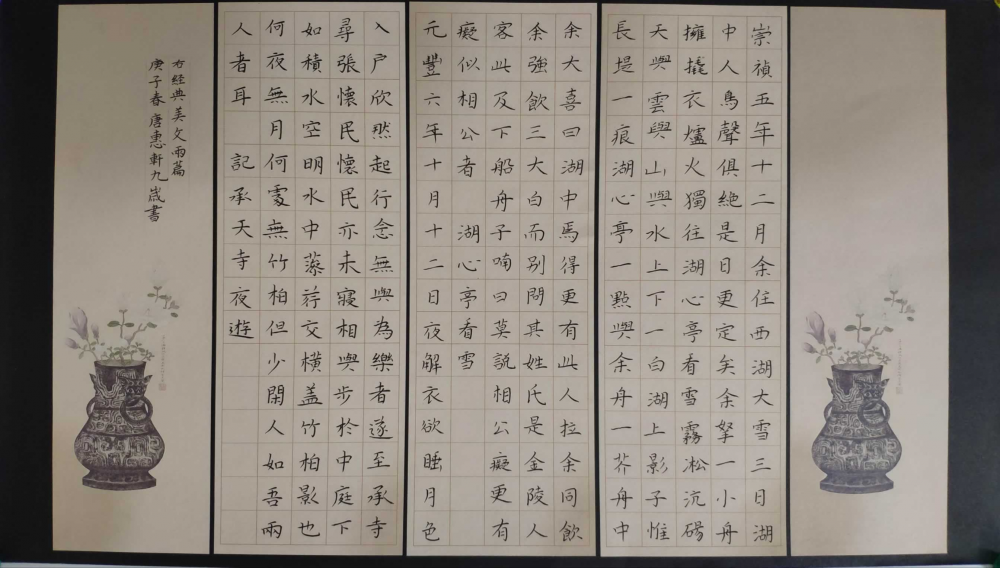 崇禎五年十二月余住西湖大雪三日湖
中人鳥聲俱絕是日更定矣余拏一小舟
擁撬衣爐火獨往湖心亭看雪霧凇沆碭
天與雲與山與水上下一白湖上影子惟
長堤一痕湖心亭一點與余舟一芥舟中
余大喜曰湖中焉得更有此人拉余同飲
余強飲三大白而别問其姓氏是金陵人
客此及下船舟子喃曰莫説相公癡更有
癡似相公者 湖心亭看雪
元豐六年十月十二日夜解衣欲睡月色
入户欣然起行念無與為樂者遂至承寺
尋張懷民懷民亦未寢相與步於中庭下
如積水空明水中藻荇交橫盖竹柏影也
何夜無月何處無竹柏但少閑人如吾兩
人者耳 記承天寺夜遊
右經典美文兩篇
庚子春唐惠軒九歲書